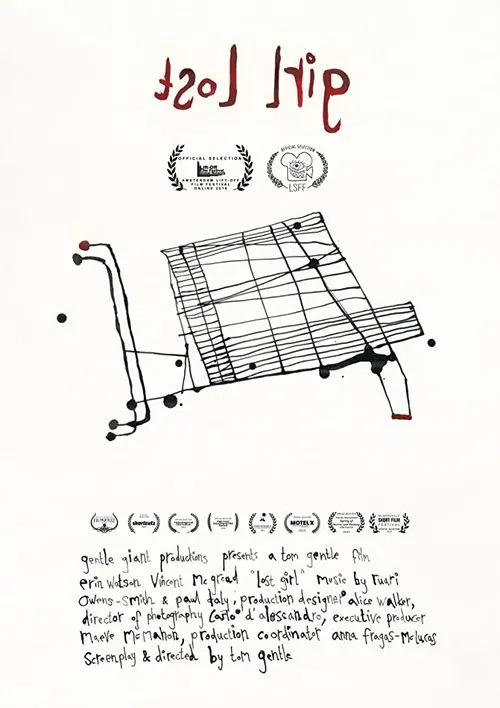 lost girl
OFFICIAL SELECTION
LIFT-OFF
AMSTERDAM LIFT-OFF
FILM FESTIVAL
ONLINE 2018
OFFICIAL SELECTION
LSFF
FILMOFEST
shortcutz
MOTELX
SHORT FILM
FESTIVAL
gentle giant productions presents a tom gentle film
erin watson Vincent McGread "lost girl" music by ruari
Owens-Smith & paul daly, production designer alice walker,
director of photography Carlo d'alessandro, executive producer
Maeve McMahon, production coordinator anna fragas-McLucas
Screenplay & directed by tom gentle